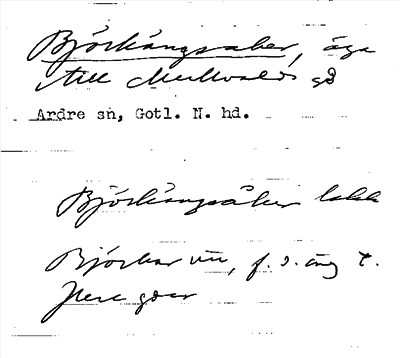 Björkängsåker, äga
till Mullvalds gd
Ardre sn, Gotl. N. hd.
Björkängsåker
Björkar f. d. äng t.